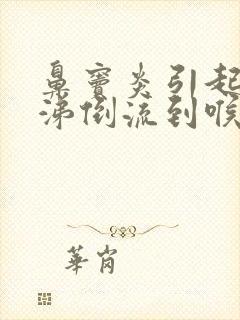 鼻窦炎引起
涕倒流到喉
華肖